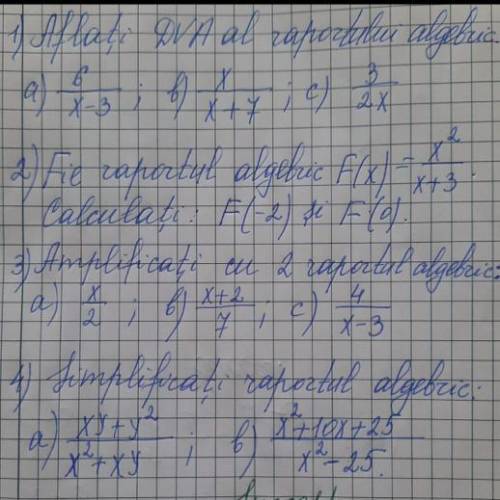 1) Aflați DVA al raportului algebric:
a) 6/(x-3) ; b) x/(x+7) ; c) 3/(2x)
2) Fie raportul algebric F(x) = x²/(x+3).
Calculați: F(-2) și F(0).
3) Amplificați cu 2 raportul algebric:
a) x/2 ; b) (x+2)/7 , c) 4/(x-3)
4) Simplificați raportul algebric:
a) (xy+y²)/(x²+xy) ; b) (x²+10x+25)/(x²-25).